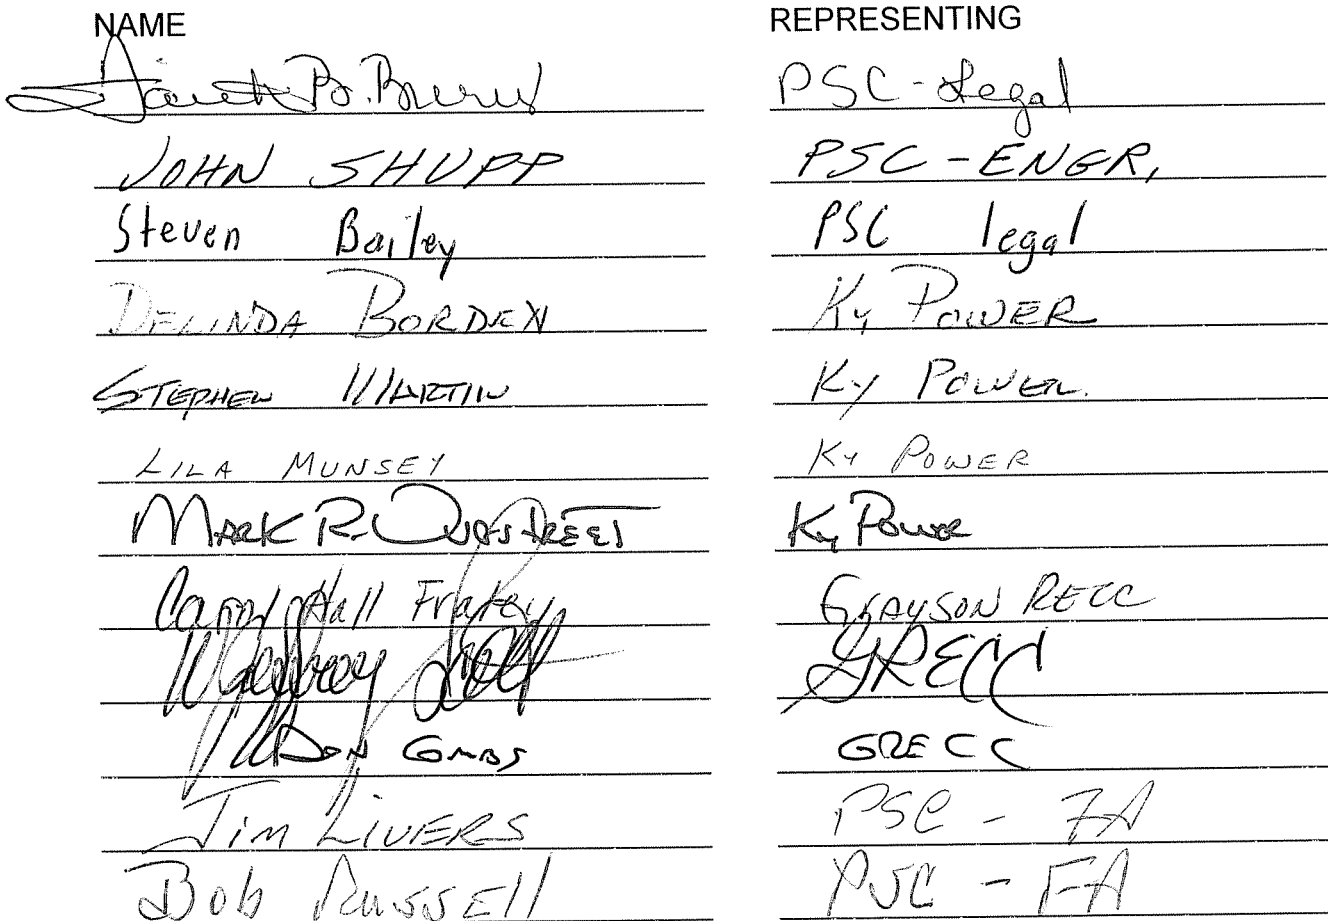 NAME REPRESENTING
B. PSC-Legal
JOHN SHUPP PSC-ENGR,
Steven Bailey PSC legal
DELINDA BORDEN Ky POWER
STEPHEN MARTIN Ky POWER.
LILA MUNSEY Ky POWER
MARK R. OVERSTREET Ky Power
Carol Hall Fraley GRAYSON RECC
GRECC
DON COMBS GRECC
Jim LIVERS PSC - FA
Bob RUSSEll PSC - FA